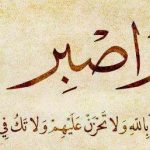 اصبر
بِاللهِ وَلَا تَحْزَنْ عَلَيْهِمْ وَلَا تَكُ فِي